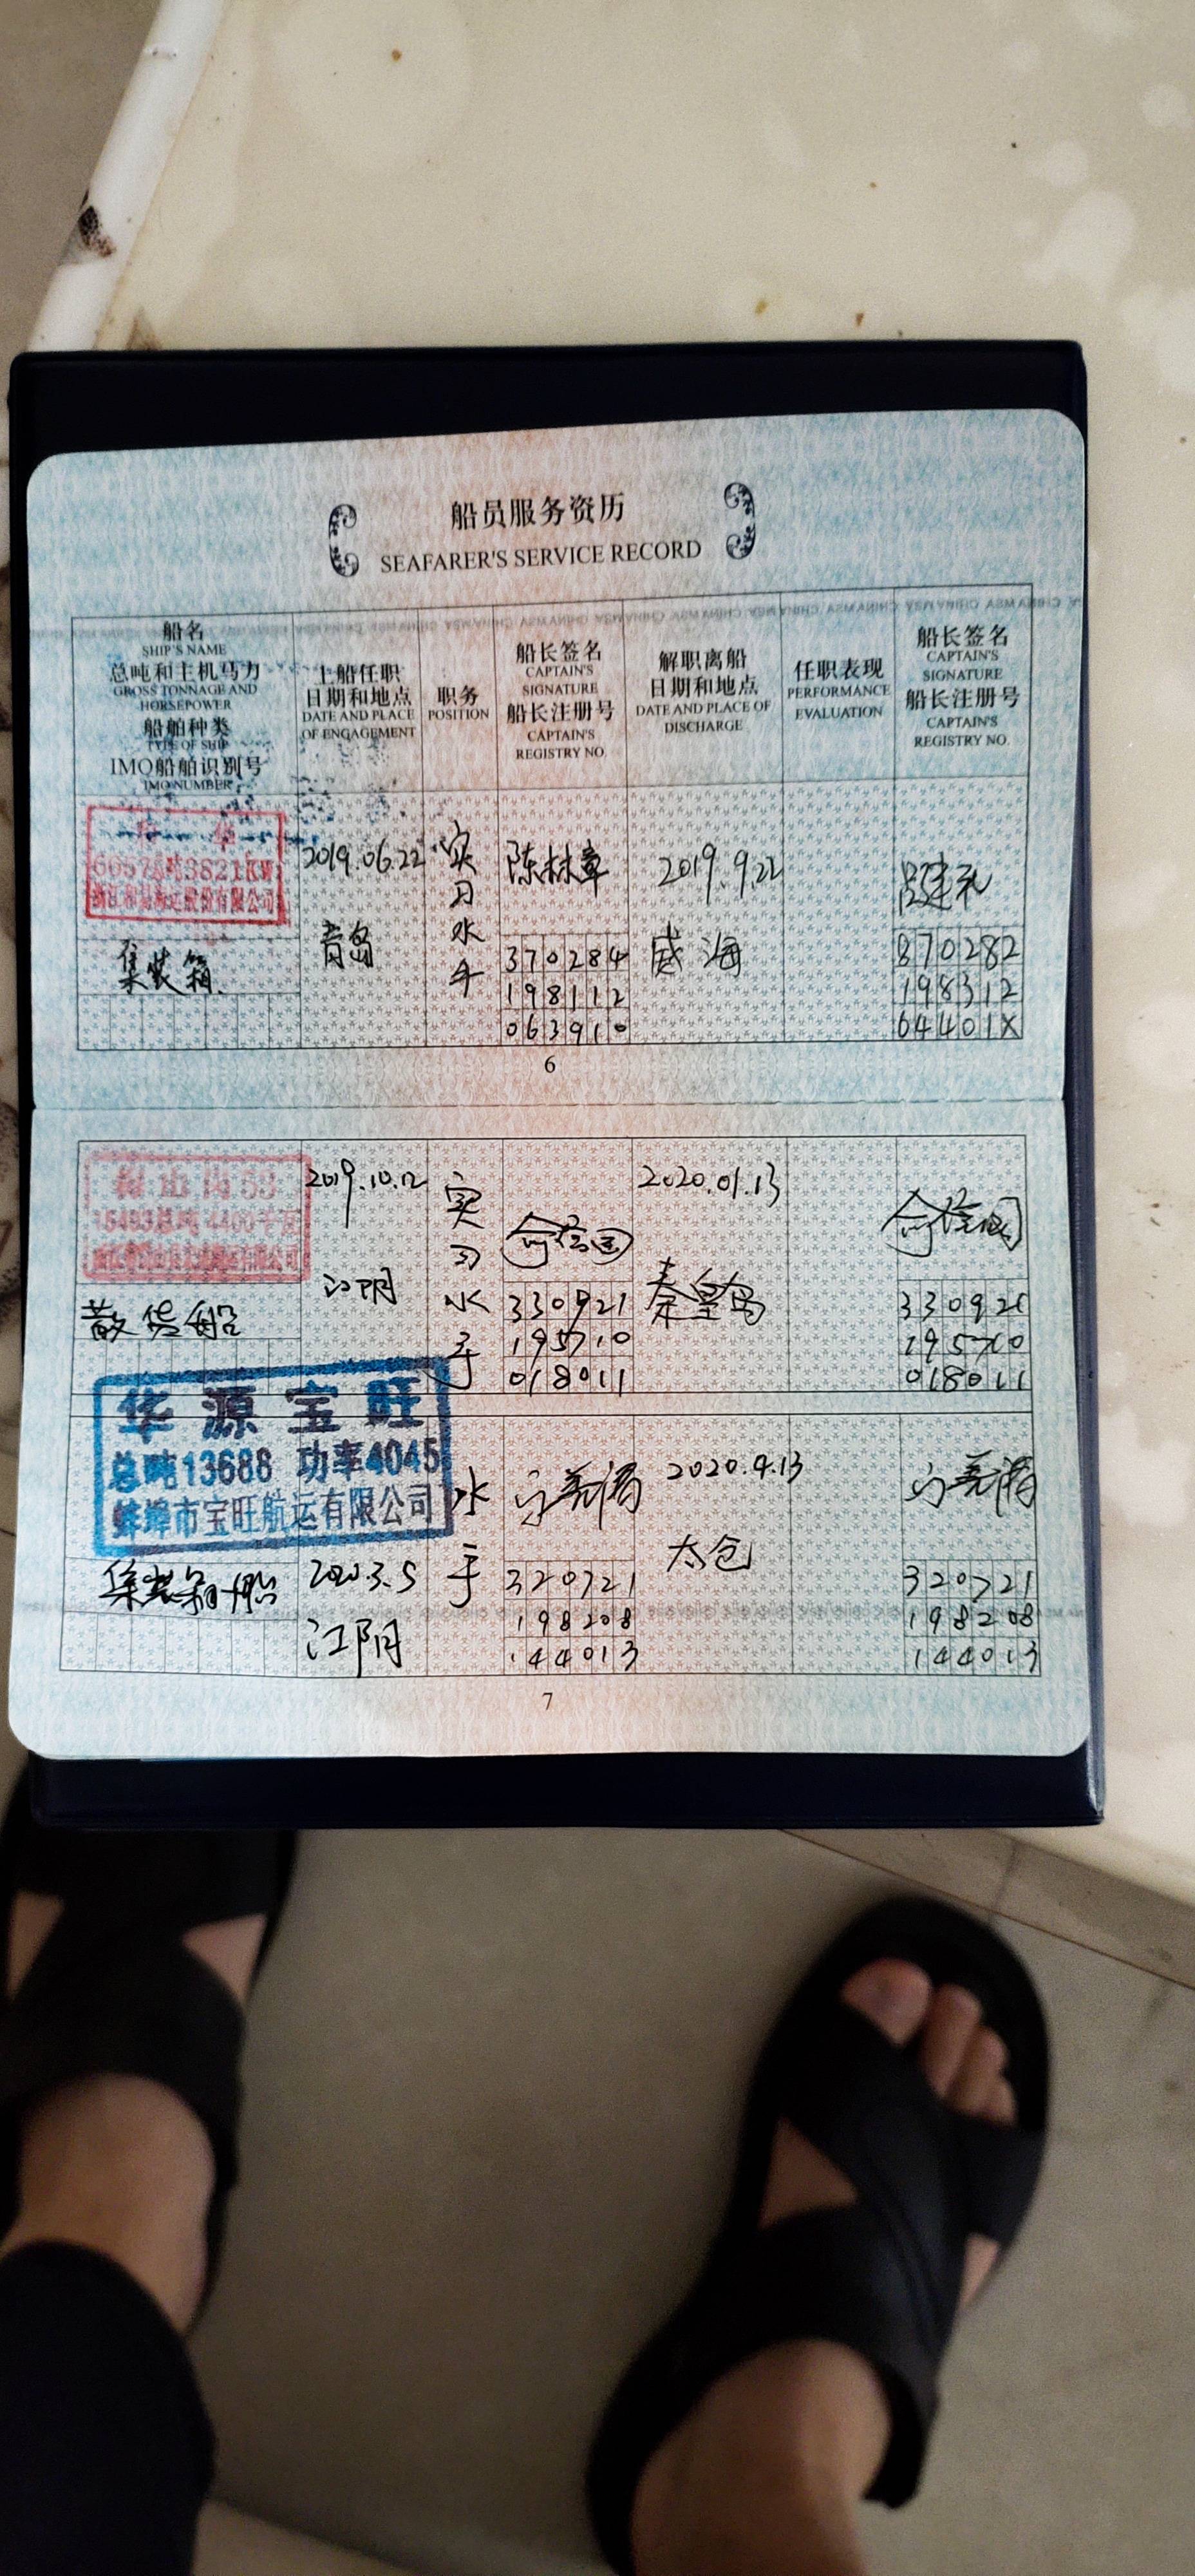 船员服务资历
SEAFARER'S SERVICE RECORD
船名
SHIP'S NAME
总吨和主机马力
GROSS TONNAGE AND
HORSEPOWER
船舶种类
TYPE OF SHIP
IMO船舶识别号
IMO NUMBER
上船任职
日期和地点
DATE AND PLACE
OF ENGAGEMENT
职务
POSITION
船长签名
CAPTAIN'S
SIGNATURE
船长注册号
CAPTAIN'S
REGISTRY NO.
解职离船
日期和地点
DATE AND PLACE OF
DISCHARGE
任职表现
PERFORMANCE
EVALUATION
船长签名
CAPTAIN'S
SIGNATURE
船长注册号
CAPTAIN'S
REGISTRY NO.
集装箱
2019.06.22
青岛
实习水手
陈林章
370284
198112
063910
2019.9.22
威海
870282
198312
64401X
6
散货船
2019.10.12
江阴
实习水手
330921
195710
018011
2020.01.13
秦皇岛
330921
195710
018011
华源宝旺
总吨13688 功率4045
蚌埠市宝旺航运有限公司
集装箱船
2020.3.5
江阴
水手
320721
198208
144013
2020.4.13
太仓
320721
198208
144013
7